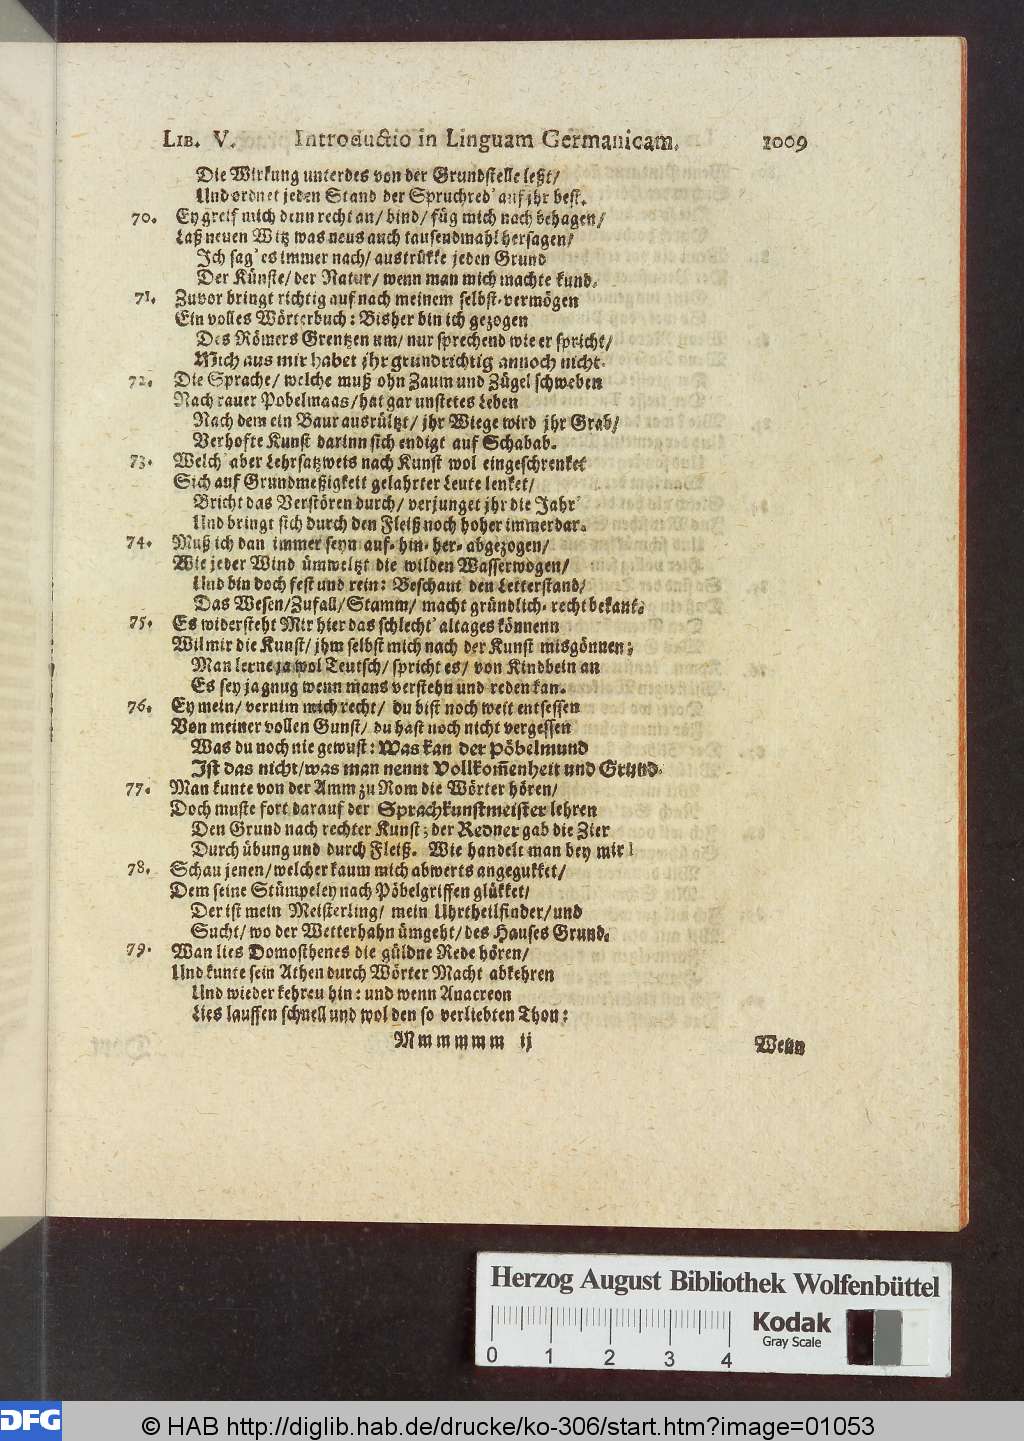 LIB. V. Introductio in Linguam Germanicam. 1009
Die Wirkung unterdes von der Grundstelle leßt/
Und ordnet jeden Stand der Spruchred' auf jhr best.
70. Ey greif mich denn recht an/ bind/ füg mich nach behagen/
Laß neuen Witz was neus auch tausendmahl hersagen/
Ich sag' es immer nach/ austrükke jeden Grund
Der Künste/ der Natur/ wenn man mich machte kund.
71. Zuvor bringt richtig auf nach meinem selbst-vermögen
Ein volles Wörterbuch: Bisher bin ich gezogen
Des Römers Grentzen um/ nur sprechend wie er spricht/
Mich aus mir habet jhr grundrichtig annoch nicht.
72. Die Sprache/ welche muß ohn Zaum und Zügel schweben
Nach rauer Pobelmaas/ hat gar unstetes Leben
Nach dem ein Baur ausrültzt/ jhr Wiege wird jhr Grab/
Verhofte Kunst darinn sich endigt auf Schabab.
73. Welch' aber Lehrsatzweis nach Kunst wol eingeschrenket
Sich auf Grundmeßigkeit gelahrter Leute lenket/
Bricht das Verstören durch/ verjunget jhr die Jahr'
Und bringt sich durch den Fleiß noch hoher immerdar.
74. Muß ich dan immer seyn auf- hin- her- abgezogen/
Wie jeder Wind ümweltzt die wilden Wasserwogen/
Und bin doch fest und rein: Beschaut den Letterstand/
Das Wesen/ Zufall/ Stamm/ macht gründlich- recht bekant.
75. Es widersteht Mir hier das schlecht' altages könnenn
Wil mir die Kunst/ jhm selbst mich nach der Kunst misgönnen;
Man lerne ja wol Teutsch/ spricht es/ von Kindbein an
Es sey ja gnug wenn mans verstehn und reden kan.
76. Ey mein/ vernim mich recht/ du bist noch weit entsessen
Von meiner vollen Gunst/ du hast noch nicht vergessen
Was du noch nie gewust: Was kan der Pöbelmund
Ist das nicht/ was man nennt Vollkom̃enheit und Grund.
77. Man kunte von der Amm zu Rom die Wörter hören/
Doch muste fort darauf der Sprachkunstmeister lehren
Den Grund nach rechter Kunst; der Redner gab die Zier
Durch übung und durch Fleiß. Wie handelt man bey mir!
78. Schau jenen/ welcher kaum mich abwerts angegukket/
Dem seine Stümpeley nach Pöbelgriffen glükket/
Der ist mein Meisterling/ mein Uhrtheilfinder/ und
Sucht/ wo der Wetterhahn ümgeht/ des Hauses Grund.
79. Wan lies Domosthenes die güldne Rede hören/
Und kunte sein Athen durch Wörter Macht abkehren
Und wieder kehren hin: und wenn Anacreon
Lies lauffen schnell und wol den so verliebten Thon:
Mmmmmm ij Wenn
Herzog August Bibliothek Wolfenbüttel
Kodak
Gray Scale
0 1 2 3 4
DFG © HAB http://diglib.hab.de/drucke/ko-306/start.htm?image=01053